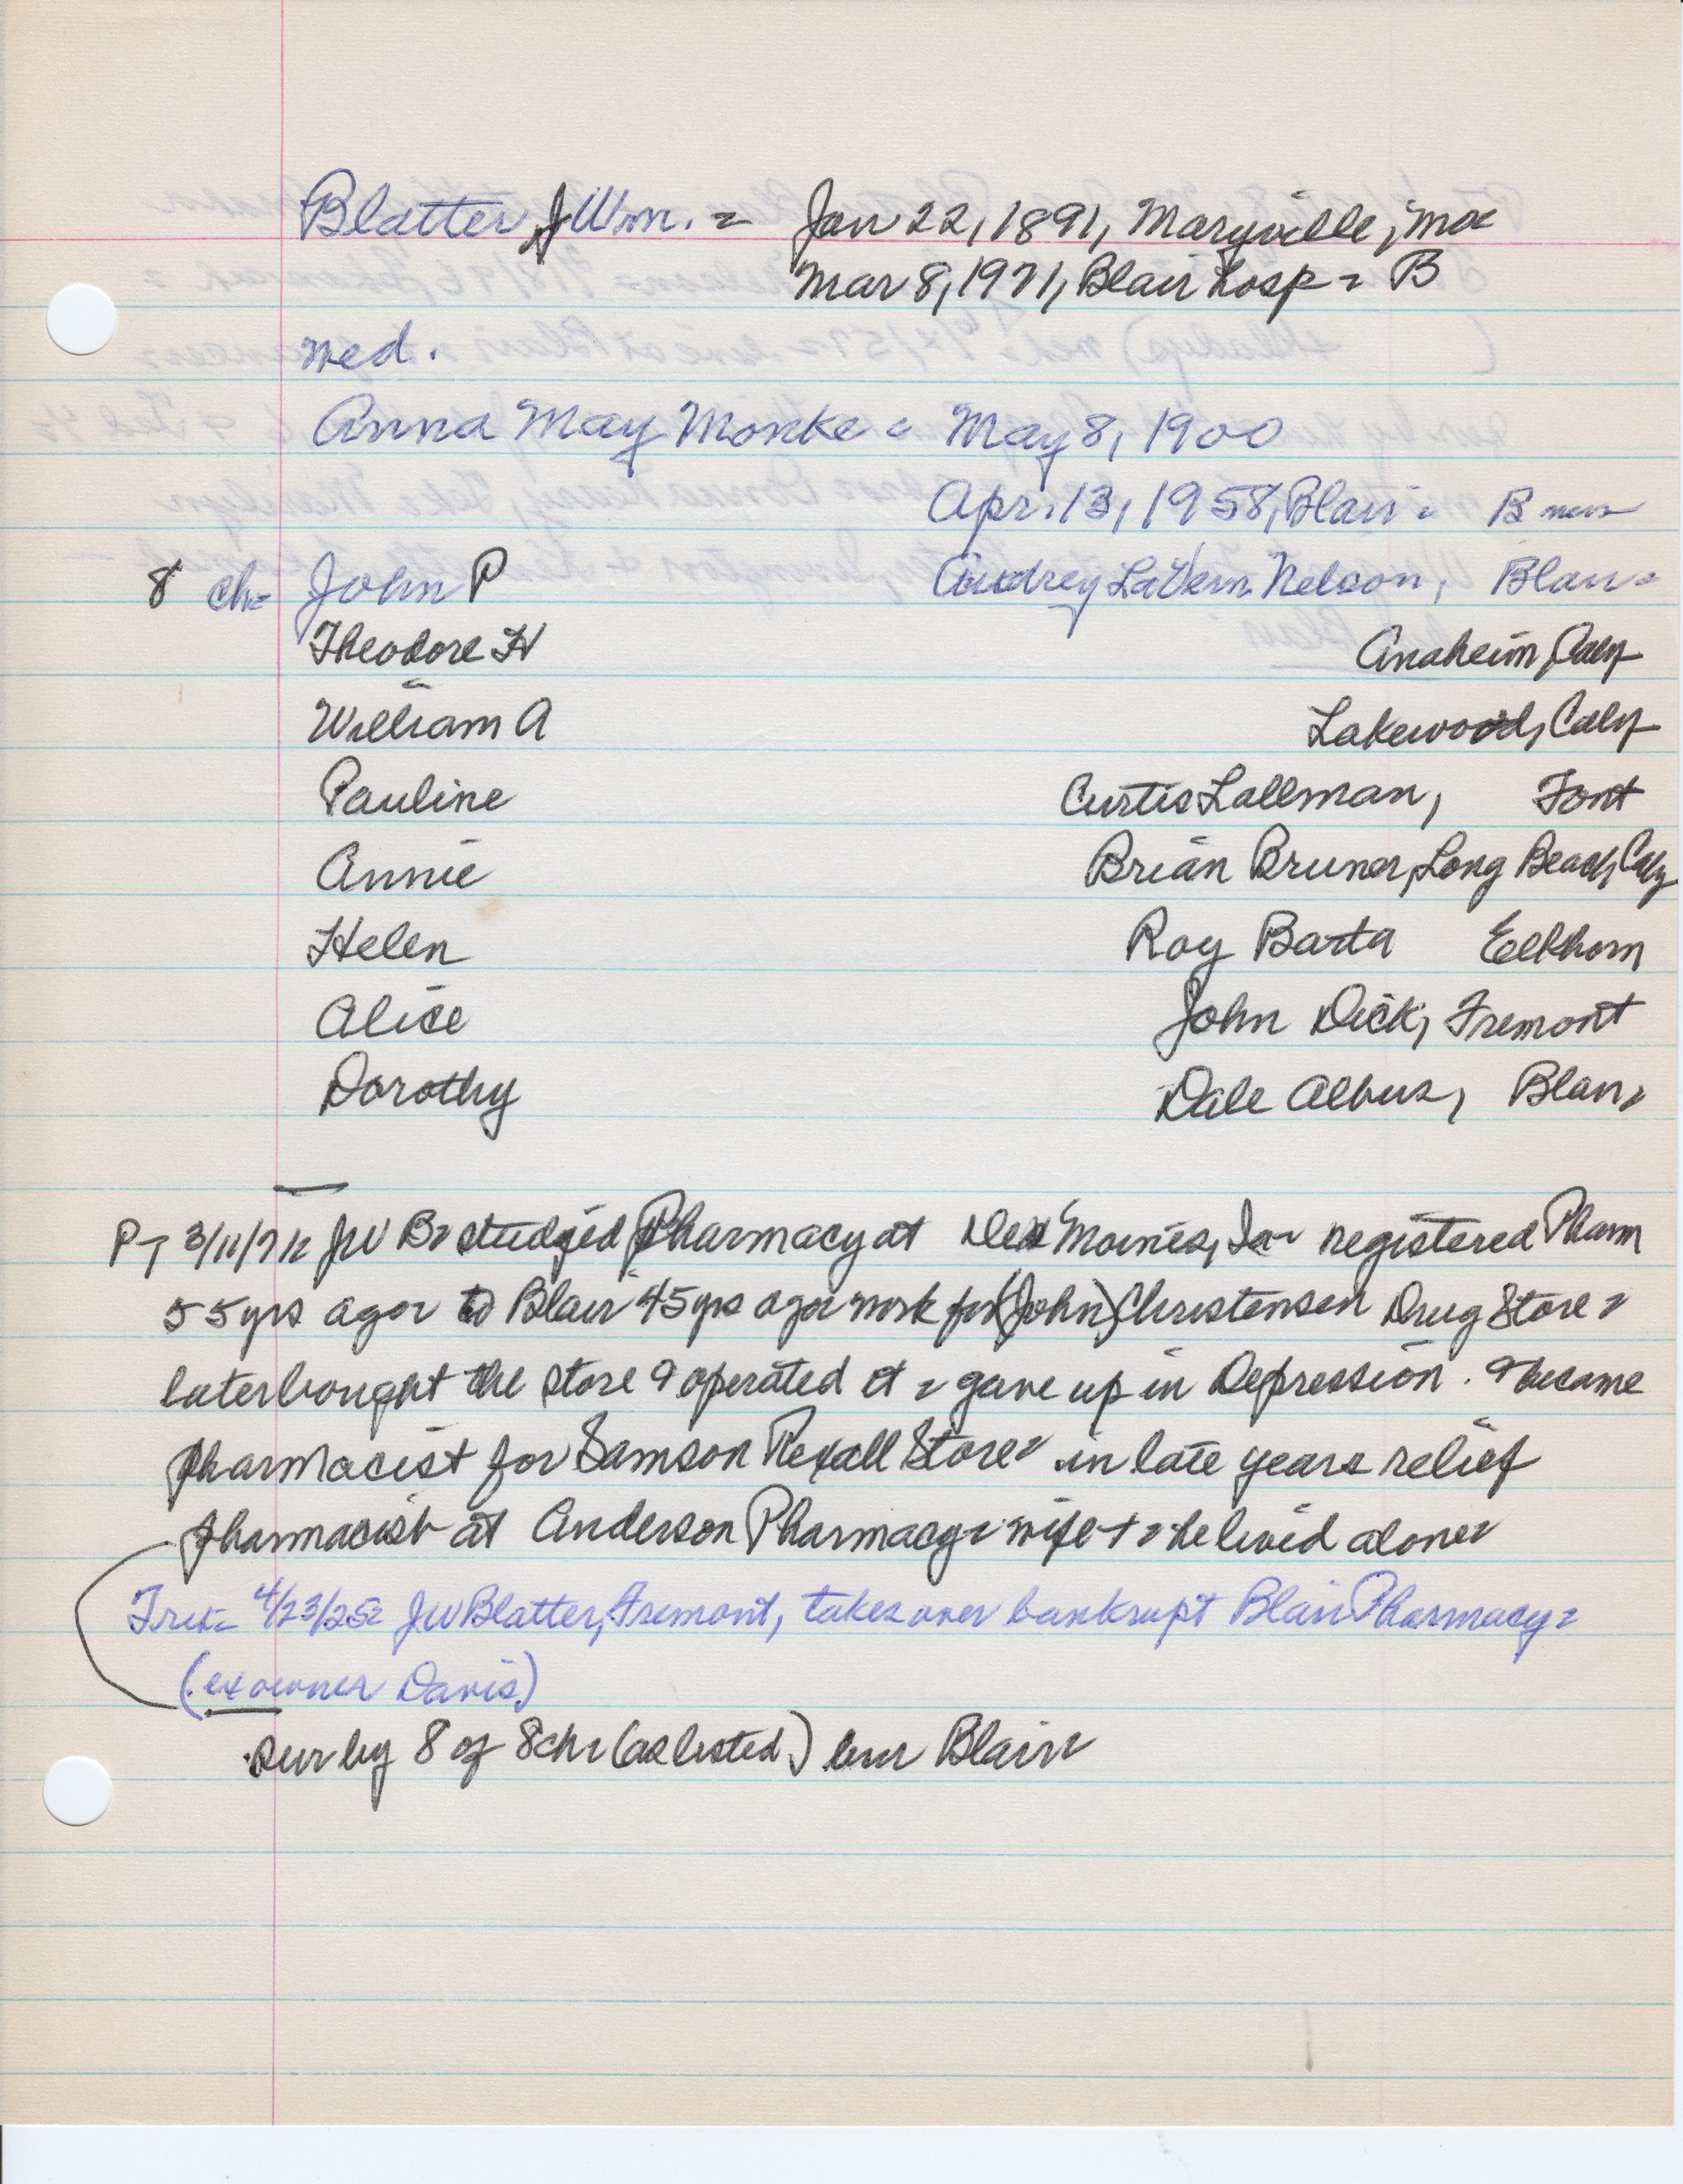 Blatter, J Wm. = Jan 22, 1891, Maryville, Mo=
Mar 8, 1971, Blair hosp = B
med.
Anna May Monke = May 8, 1900
Apr. 13, 1958, Blair = B
8 ch= John P Audrey LaVern Nelson, Blair=
Theodore H Anaheim, Calif
William A Lakewood, Calif
Pauline Curtis Lallman, Font
Annie Brian Bruner, Long Beach, Calif
Helen Roy Barta Elkhorn
Alice John Dick, Fremont
Dorothy Dale Albers, Blair=
PT 3/11/71= JW B= studied Pharmacy at Des Moines, Ia= registered Pharm
55 yrs ago= to Blair 45 yrs ago= work for (John) Christensen Drug Store=
later bought the store & operated it = gave up in Depression. & became
pharmacist for Samson Rexall Store= in late years relief
pharmacist at Anderson Pharmacy= wife + = he lived alone=
Trib= 4/23/25= JW Blatter, Fremont, takes over bankrupt Blair Pharmacy=
(ex owner Davis)
sur by 8 of 8 ch= (as listed) bur Blair=